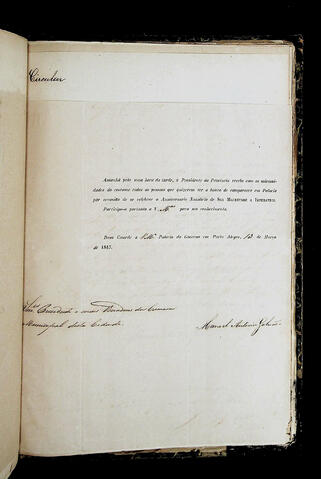 Circular
Amanhã pela huma hora da tarde, o Presidente da Provincia recebe com as solemni-
dades do costume todas as pessoas que quizerem ter a honra de comparecer em Palacio
por occasião de se celebrar o Anniversario Natalicio de Sua Magestade a Imperatriz.
Participo-o portanto a V. M.ces para seu conhecimento.
Deos Guarde a V. M.ces Palacio do Governo em Porto Alegre, 13 de Março
de 1847.
Presidente e mais Vereadores da Camara
Municipal desta Cidade.
Manoel Antonio Galvão